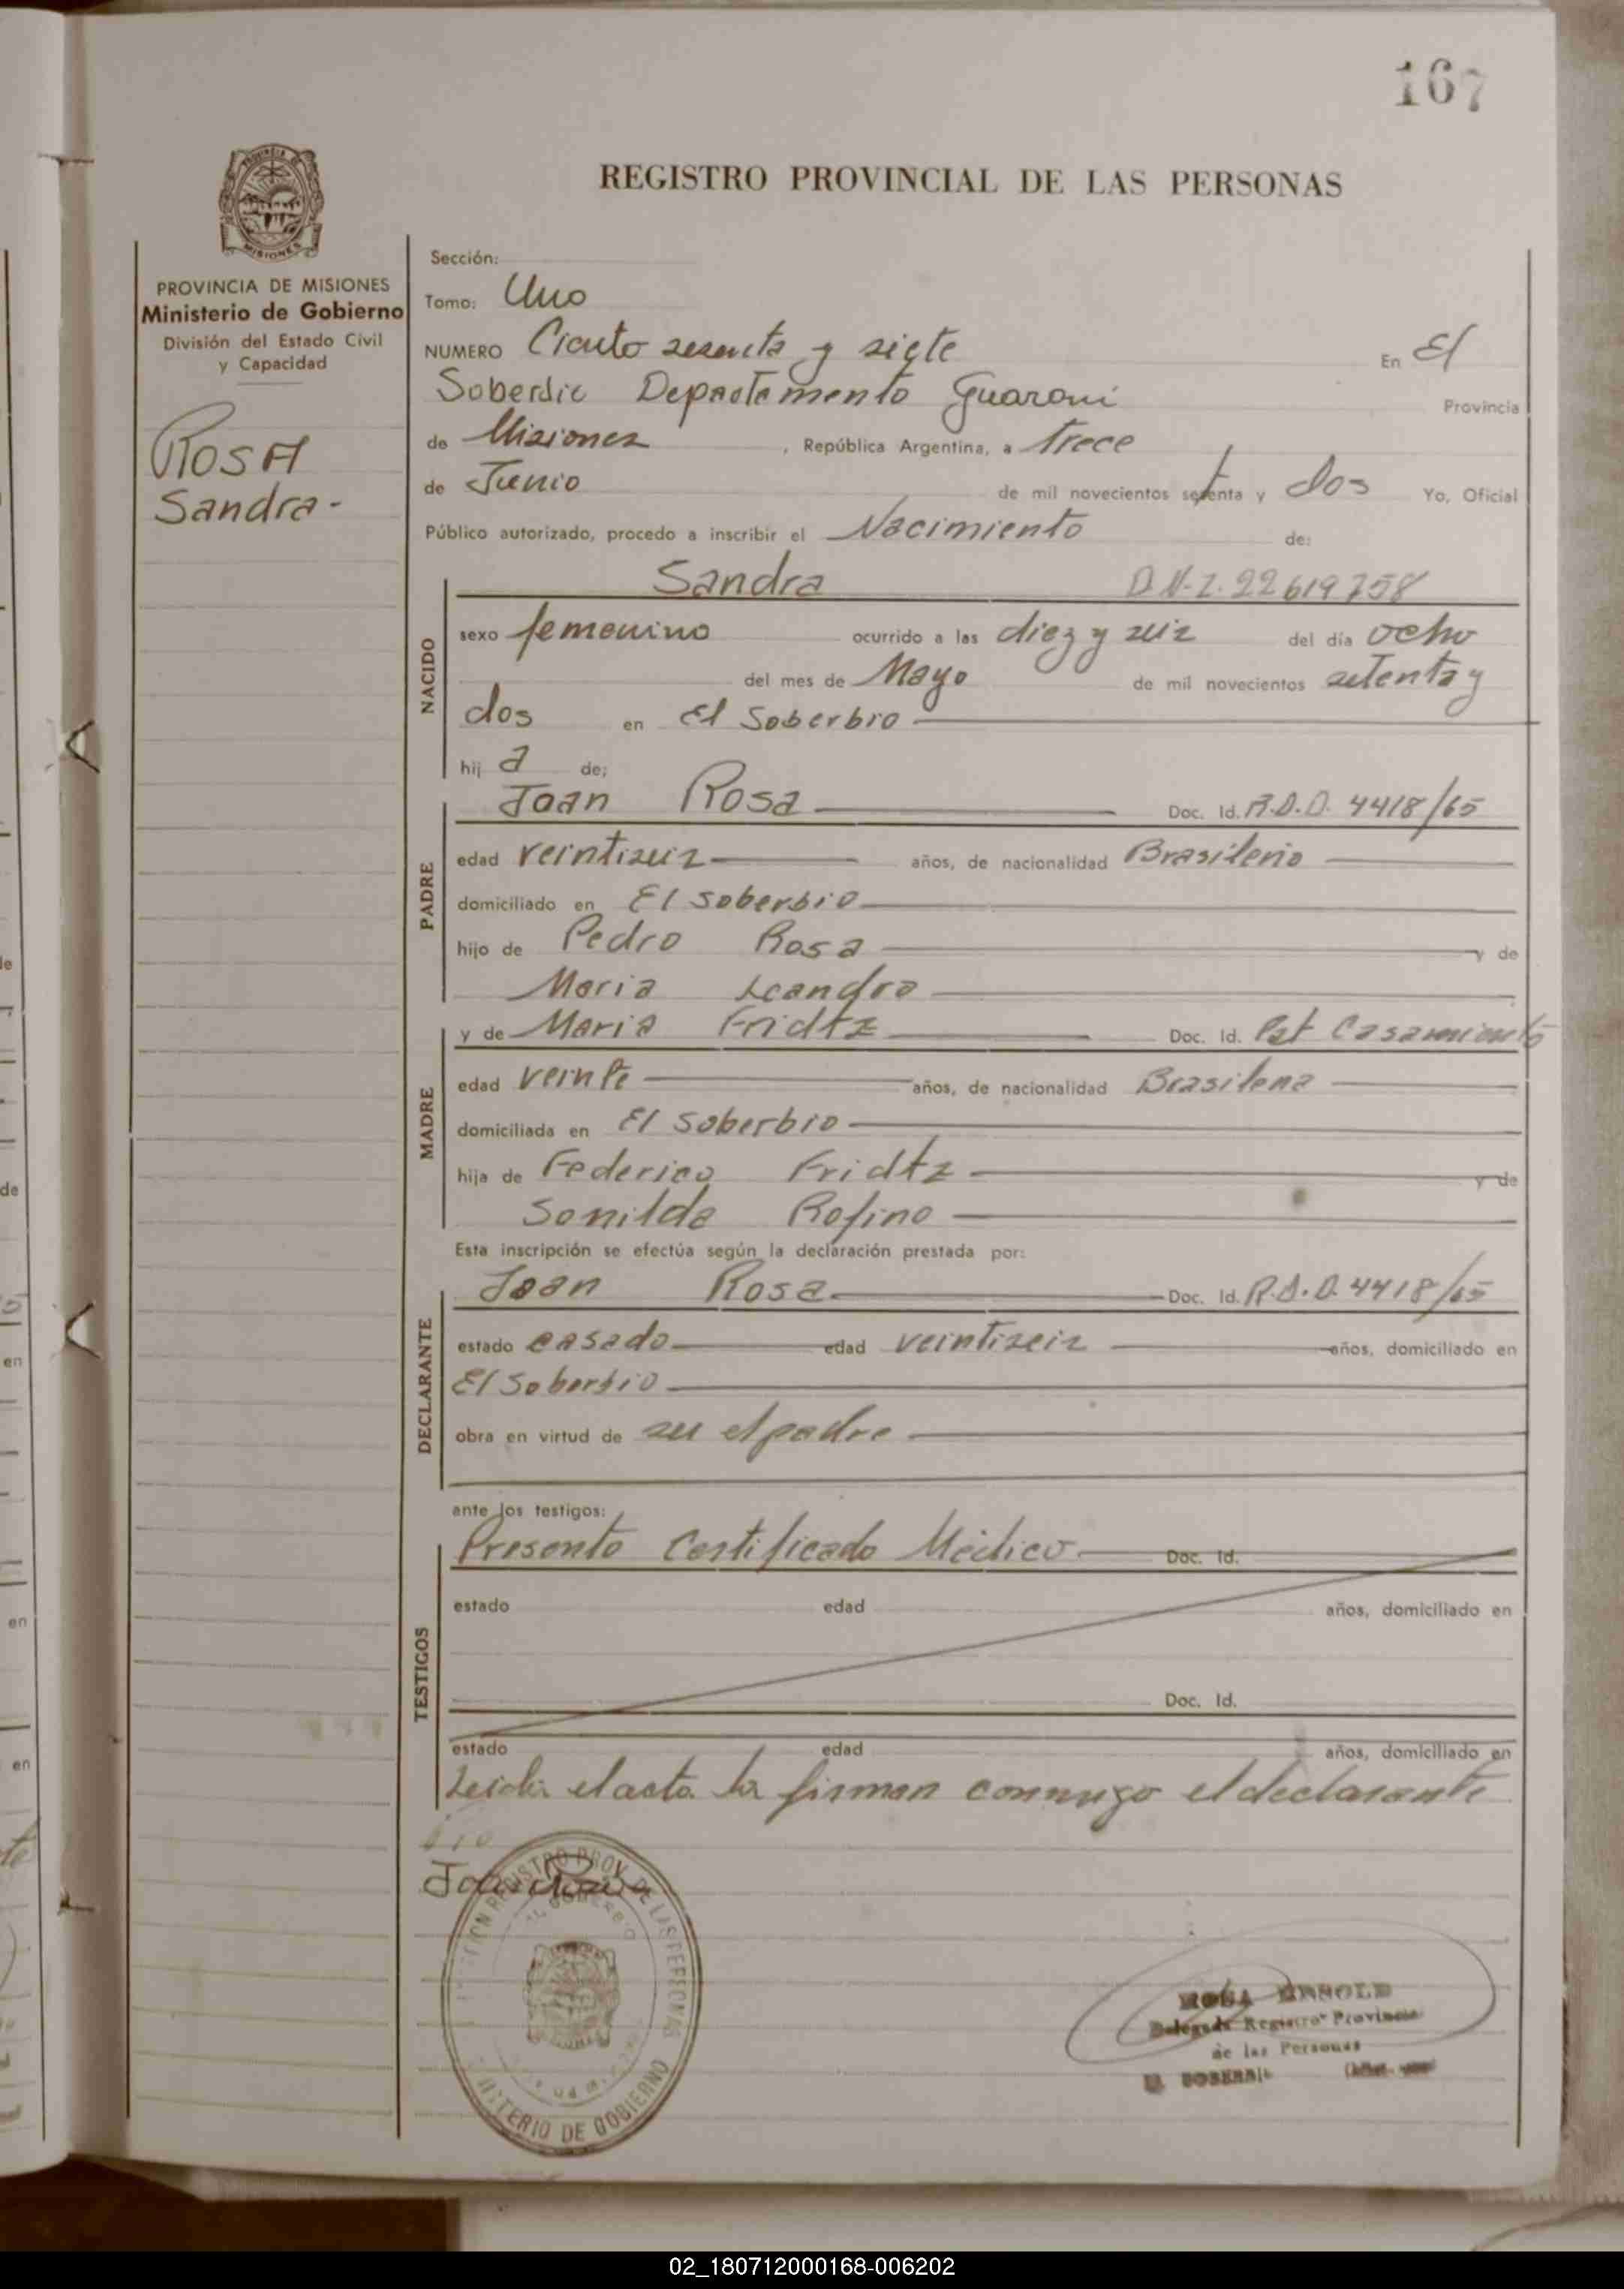 167
REGISTRO PROVINCIAL DE LAS PERSONAS
PROVINCIA DE
MISIONES
PROVINCIA DE MISIONES
Ministerio de Gobierno
División del Estado Civil
y Capacidad
ROSA
Sandra-
Sección:
Tomo: Uno
NUMERO Ciento sesenta y siete En El
Soberbio Departamento Guarani Provincia
de Misiones , República Argentina, a Trece
de Junio de mil novecientos setenta y dos Yo, Oficial
Público autorizado, procedo a inscribir el Nacimiento de:
NACIDO
Sandra D.N.I. 22619758
sexo femenino ocurrido a las diez y seis del día ocho
del mes de Mayo de mil novecientos setenta y
dos en El Soberbio
hij a de;
PADRE
Joan Rosa Doc. Id. R.D.D. 4418/65
edad veintiseis años, de nacionalidad Brasileño
domiciliado en El Soberbio
hijo de Pedro Rosa y de
Maria Leandro
MADRE
y de Maria Fridtz Doc. Id. Casamiento
edad veinte años, de nacionalidad Brasileña
domiciliada en El Soberbio
hija de Federico Fridtz y de
Sonilda Rofino
Esta inscripción se efectúa según la declaración prestada por:
DECLARANTE
Joan Rosa Doc. Id. R.D.D. 4418/65
estado casado edad veintiseis años, domiciliado en
El Soberbio
obra en virtud de su el padre
ante los testigos:
TESTIGOS
Presento Certificado Médico Doc. Id.
estado edad años, domiciliado en
Doc. Id.
estado edad años, domiciliado en
Leida el acta la firman conmigo el declarante
REGISTRO PROV. DE LAS PERSONAS
MINISTERIO DE GOBIERNO
ROSA
Delegada Registro Provincial
de las Personas
EL SOBERBIO
02_180712000168-006202